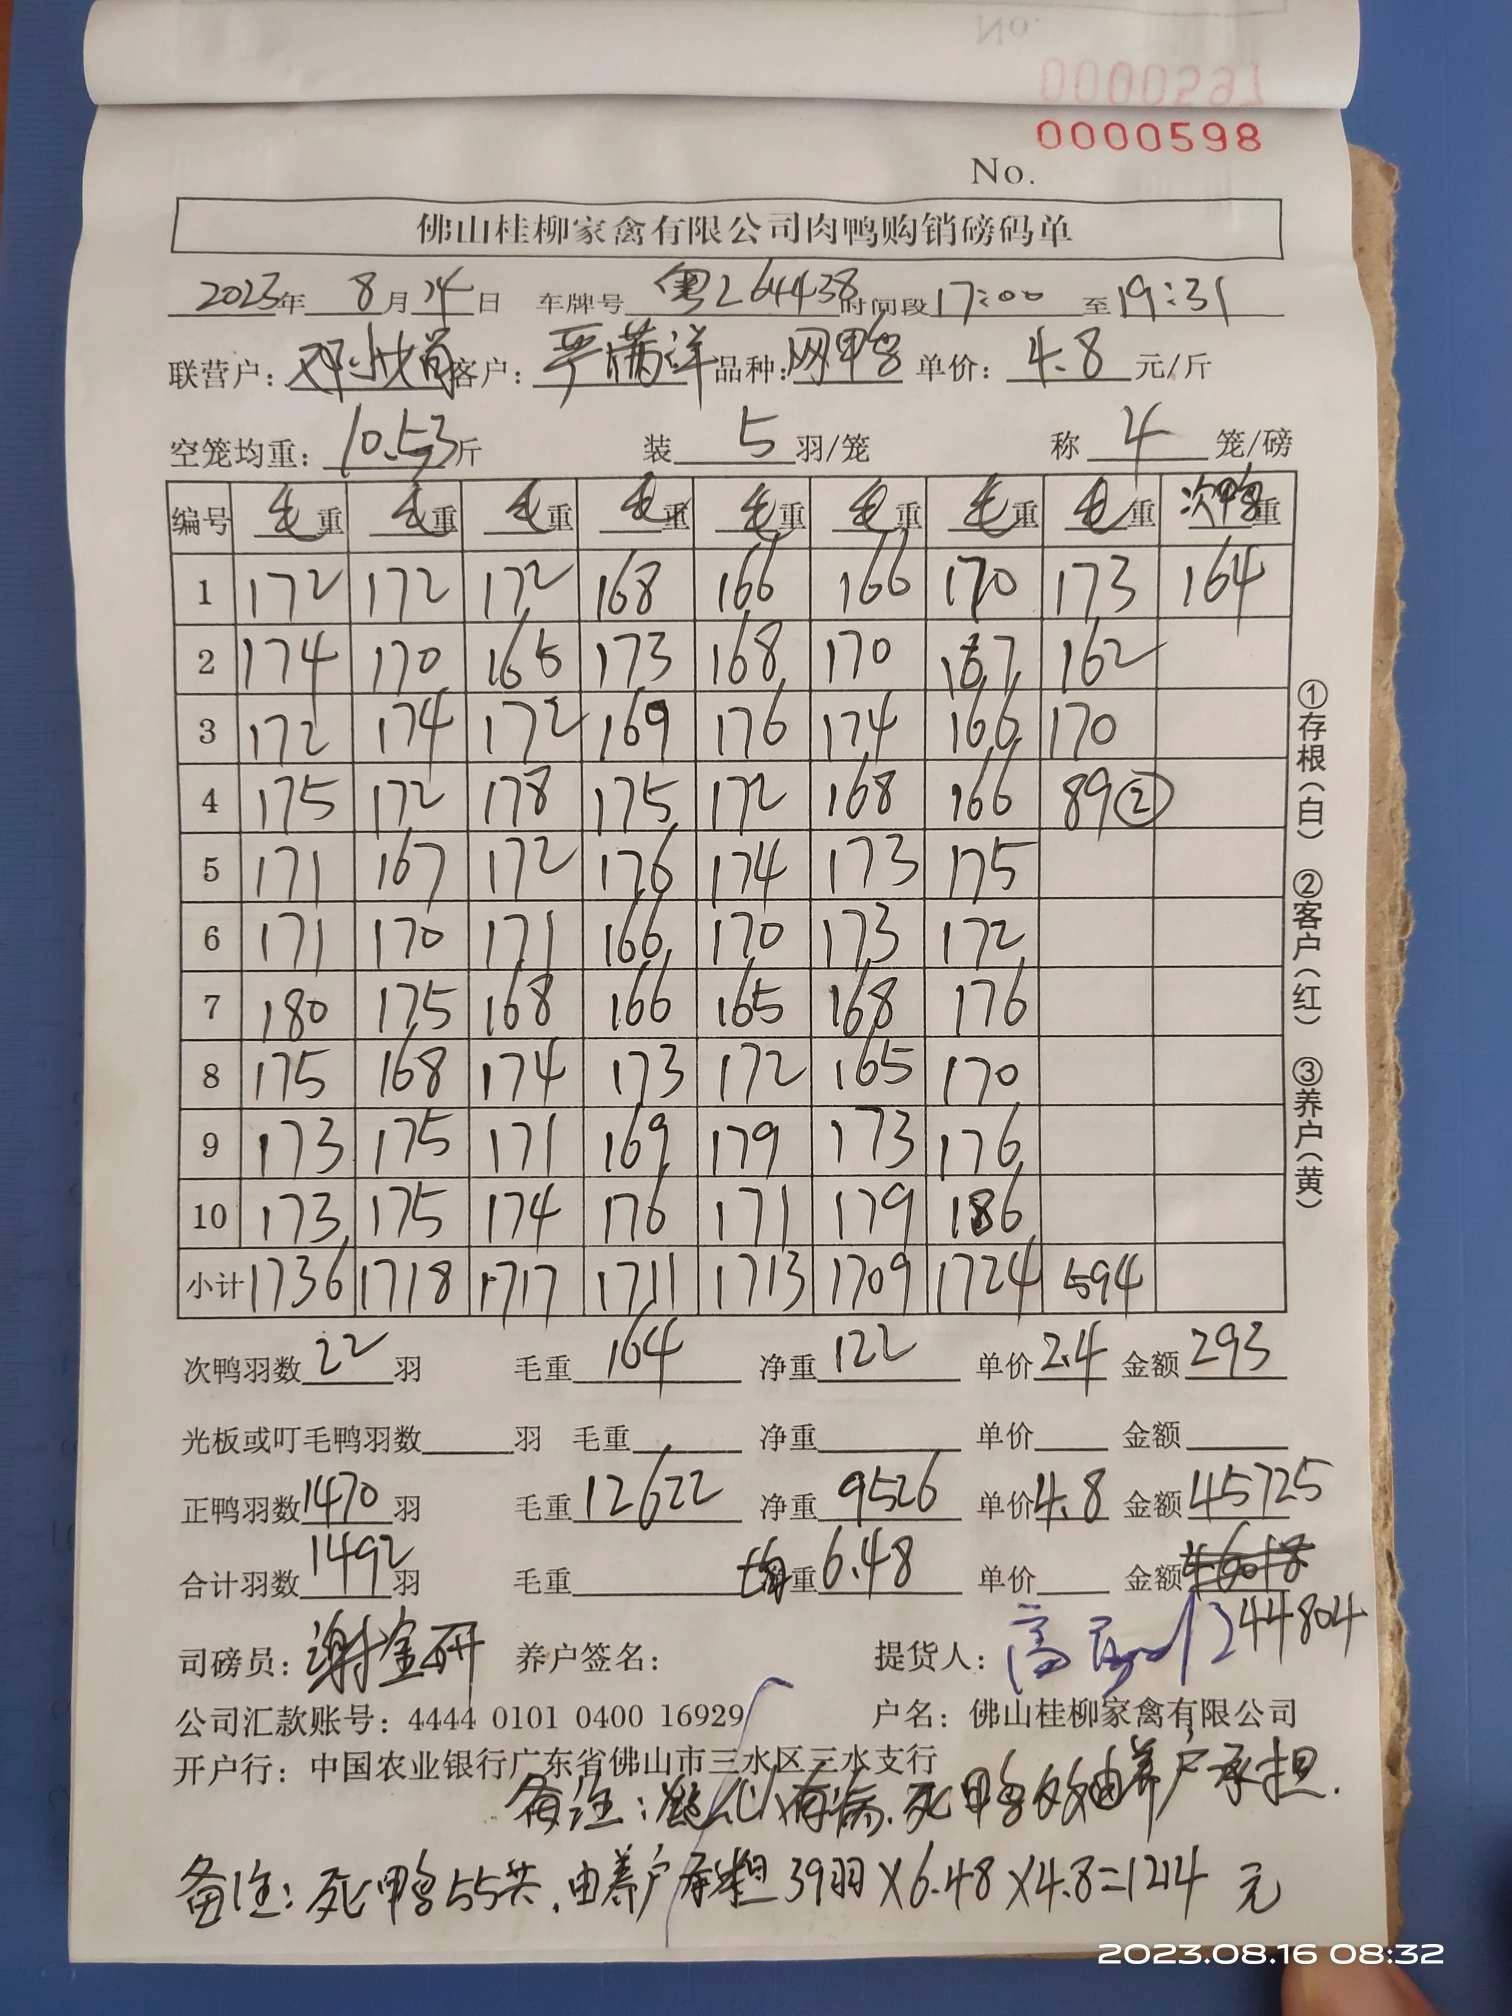 No.
0000597
0000598
No.
佛山桂柳家禽有限公司肉鸭购销磅码单
2023年 8月14日 车牌号 粤Z64438 时间段 17:00 至 19:31
联营户: 客户: 严满洋 品种: 网鸭 单价: 4.8 元/斤
空笼均重: 10.53 斤 装 5 羽/笼 称 4 笼/磅
编号 毛重 毛重 毛重 毛重 毛重 毛重 毛重 毛重 次鸭重
1 172 172 172 168 166 166 170 173 164
2 174 170 165 173 168 170 167 162
3 172 174 172 169 176 174 166 170
4 175 172 178 175 172 168 166 89②
5 171 167 172 176 174 173 175
6 171 170 171 166 170 173 172
7 180 175 168 166 165 168 176
8 175 168 174 173 172 165 170
9 173 175 171 169 179 173 176
10 173 175 174 176 171 179 186
小计 1736 1718 1717 1711 1713 1709 1724 594
①存根(白) ②客户(红) ③养户(黄)
次鸭羽数 22 羽 毛重 164 净重 122 单价 2.4 金额 293
光板或叮毛鸭羽数 羽 毛重 净重 单价 金额
正鸭羽数 1470 羽 毛重 12622 净重 9526 单价 4.8 金额 45725
合计羽数 1492 羽 毛重 均重 6.48 单价 金额 46018
44804
司磅员: 谢金研 养户签名: 提货人:
公司汇款账号: 4444 0101 0400 16929 户名: 佛山桂柳家禽有限公司
开户行: 中国农业银行广东省佛山市三水区三水支行
备注: 有病.死鸭 由养户承担.
备注: 死鸭55共, 由养户承担39羽×6.48×4.8=1214 元
2023.08.16 08:32